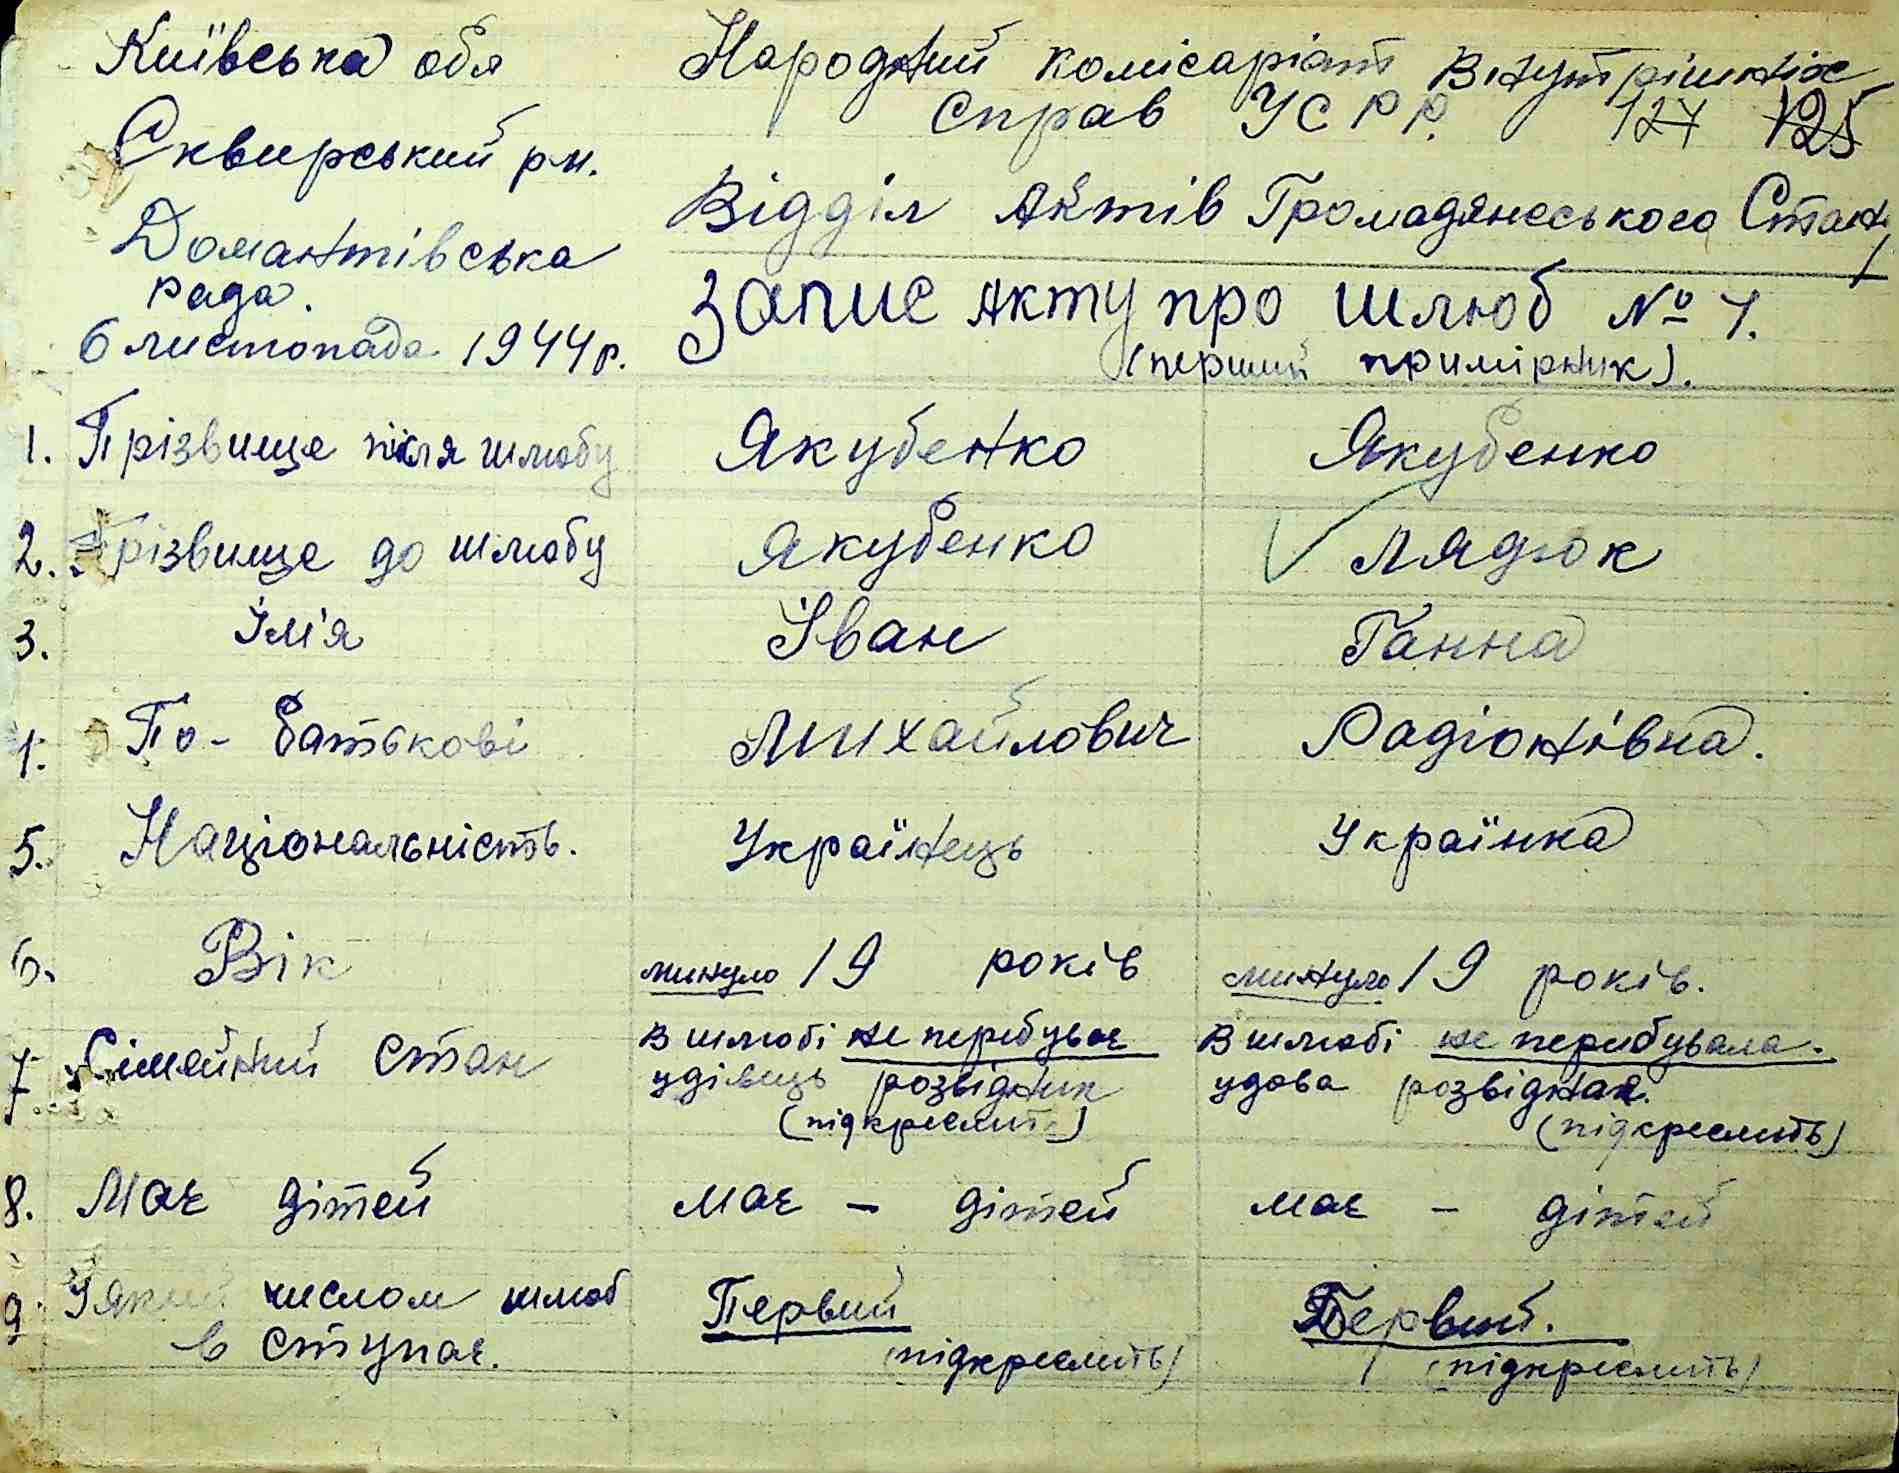 Київська обл
Сквирський рн.
Домантівська
рада.
6 листопада 1944 р.
Народний комісаріат внутрішніх
справ УСРР.
127 125
Відділ Актів Громадянського Стану
Запис акту про шлюб № 4.
(перший примірник).
1. Прізвище після шлюбу Якубенко Якубенко
2. Прізвище до шлюбу Якубенко Лядюк
3. Ім'я Іван Ганна
4. По-батькові Михайлович Радіонівна.
5. Національність. Українець Українка
6. Вік минуло 19 років минуло 19 років.
7. Сімейний стан в шлюбі не перебував в шлюбі не перебувала.
удівець розвідник удова розвідная.
(підкреслить) (підкреслить)
8. Має дітей має – дітей має – дітей
9. У який числом шлюб Первий Первий.
в ступає. (підкреслить) (підкреслить)